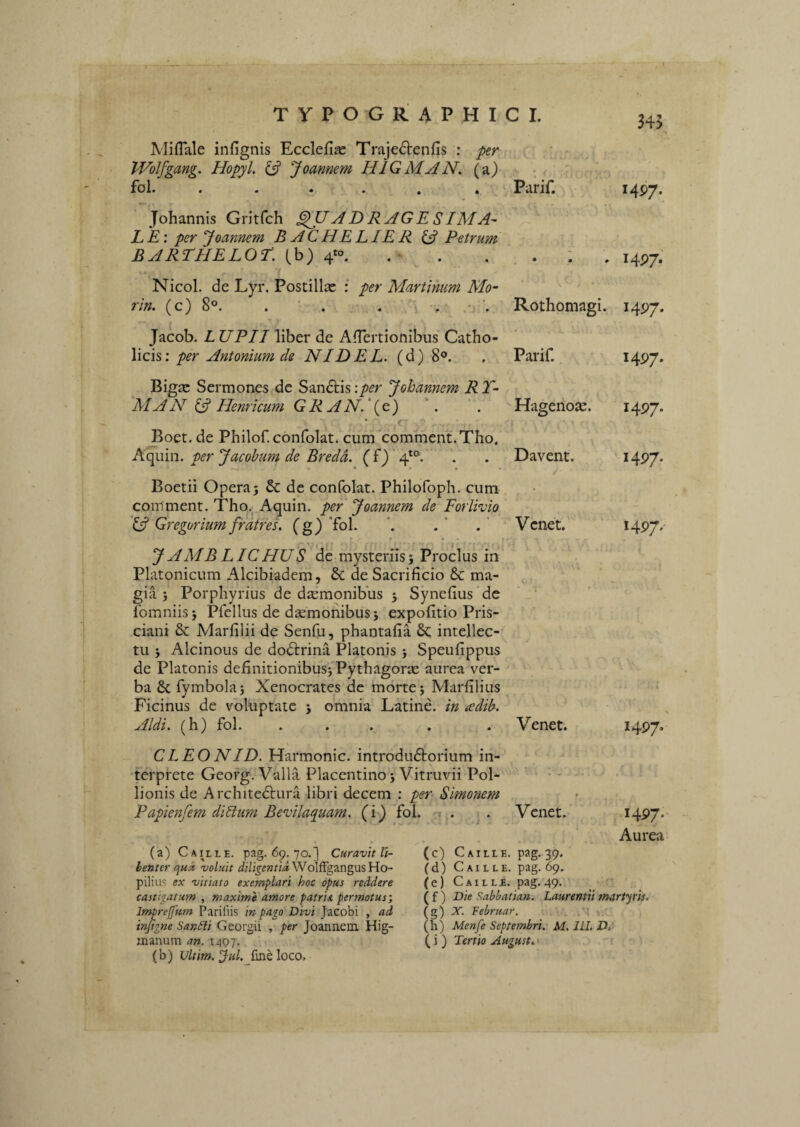 TYPOGRAPHICI. 343
Missale insignis Ecclesiæ Trajectensis : per
Wolfgang. Hopyl. & Joannem HIGMAN. (a)
fol. . . . . . . Paris. 1497.
Johannis Gritsch QUADRAGESIMA-
LE: per Joannem BACHELIER & Petrum
BARTHELOT. (b) 4to. . . . . . . 1497.
Nicol. de Lyr. Postillæ : per Martinum Mo-
rin. (c) 8°. . . . . . Rothomagi. 1497.
Jacob. LUPII liber de Assertionibus Catho-
licis: per Antonium de NIDEL. (d) 8°. . Paris. 1497.
Bigæ Sermones de Sanctis :per Johannem RY-
MAN & Henricum GRAN. (e) . . Hagenoæ. 1497.
Boet. de Philos. consolat. cum comment. Tho.
Aquin. per Jacobum de Bredâ. (f) 4to. . . Davent. 1497.
Boetii Opera; & de consolat. Philosoph. cum
comment. Tho. Aquin. per Joannem de Forlivio
& Gregorium fratres. (g) fol. . . . Venet. 1497.
JAMBLICHUS de mysteriis; Proclus in
Platonicum Alcibiadem, & de Sacrificio & ma-
giâ ; Porphyrius de dæmonibus ; Synesius de
somniis; Psellus de dæmonibus; expositio Pris-
ciani & Marsilii de Sensu, phantasiâ & intellec-
tu ; Alcinous de doctrinâ Platonis ; Speusippus
de Platonis definitionibus; Pythagoræ aurea ver-
ba & symbola; Xenocrates de morte; Marsilius
Ficinus de voluptate ; omnia Latinè. in ædib.
Aldi. (h) fol. . . . . . Venet. 1497.
CLEONID. Harmonic. introductorium in-
terprete Georg. Vallâ Placentino; Vitruvii Pol-
lionis de Architecturâ libri decem : per Simonem
Papiensem dictum Bevilaquam. (i) fol. . . . Venet. 1497.
Aurea
(a) CAILLE. pag. 69. 70.] Curavit li-
benter quâ voluit diligentiâ Wolffgangus Ho-
pilius ex vitiato exemplari hoc opus reddere
castigatum , maximè amore patriæ permotus;
Impressum Parisiis in pago Divi Jacobi , ad
insigne Sancti Georgii , per Joannem Hig-
manum an. 1497.
(b) Ultim. Jul. sinè loco.
(c) CAILLE. pag. 39.
(d) CAILLE. pag. 69.
(e) CAILLE. pag. 49.
(f) Die Sabbatian. Laurentii martyris.
(g) X. Februar.
(h) Mense Septembri. M. III. D.
(i) Tertio August.